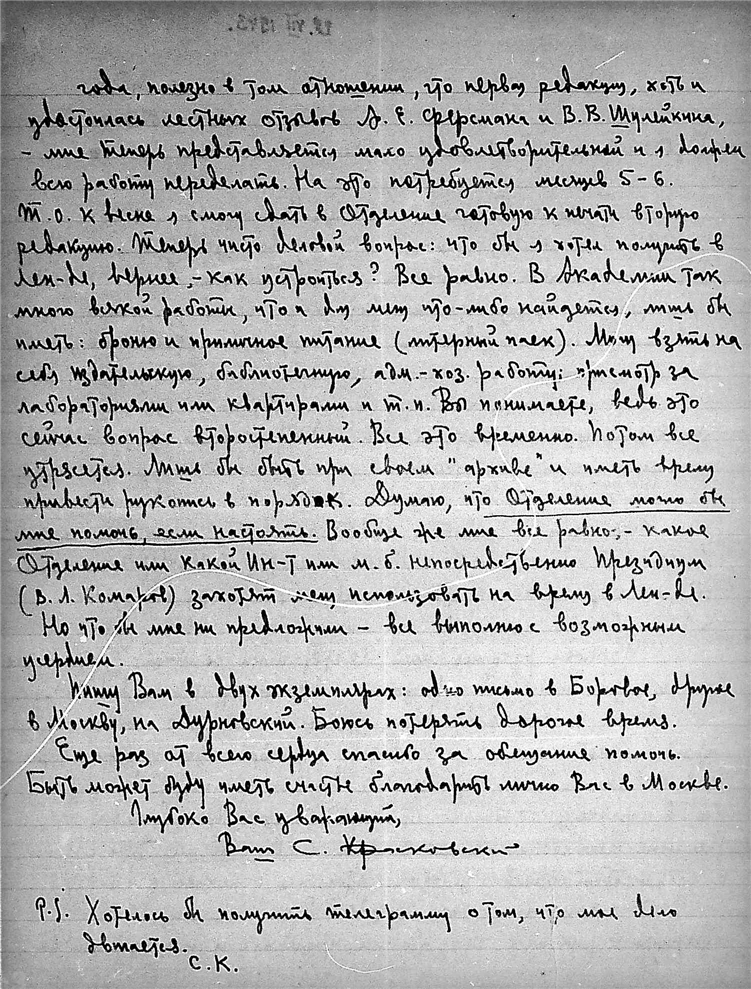 года, полезно в том отношении, что первая редакция, хоть и
удостоилась лестных отзывов А. Е. Ферсмана и В. В. Шулейкина,
- мне теперь представляется мало удовлетворительной и я должен
всю работу переделать. На это потребуется месяцев 5-6.
Т. о. к весне я смогу сдать в Отделение готовую к печати вторую
редакцию. Теперь чисто деловой вопрос: что бы я хотел получить в
Лен-де, вернее, - как устроиться? Все равно. В Академии так
много всякой работы, что и для меня что-либо найдется, лишь бы
иметь: броню и приличное питание (литерный паек). Могу взять на
себя издательскую, библиотечную, адм.-хоз. работу: присмотр за
лабораториями или квартирами и т. п. Вы понимаете, ведь это
сейчас вопрос второстепенный. Все это временно. Потом все
утрясется. Лишь бы быть при своем "архиве" и иметь время
привести рукопись в порядок. Думаю, что Отделение могло бы
мне помочь, если настоять. Вообще же мне все равно, - какое
Отделение или какой Ин-т или м. б. непосредственно Президиум
(В. Л. Комаров) захотят меня использовать на время в Лен-де.
Но что бы мне ни предложили - все выполню с возможным
усердием.
Пишу Вам в двух экземплярах: одно письмо в Боровое, другое
в Москву, на Дурновский. Боюсь потерять дорогое время.
Еще раз от всего сердца спасибо за обещание помочь.
Быть может буду иметь счастье благодарить лично Вас в Москве.
Глубоко Вас уважающий,
Ваш С.
P.S. Хотелось бы получить телеграмму о том, что мое дело
двигается.
С. К.